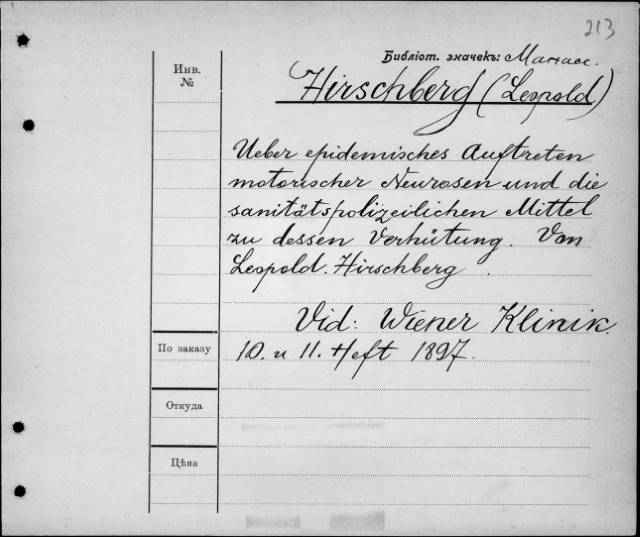 213
Библіот. значекъ: Манасс.
Инв.
№
Hirschberg (Leopold)
Ueber epidemisches Auftreten
motorischer Neurosen und die
sanitätspolizeilichen Mittel
zu dessen Verhütung. Von
Leopold Hirschberg.
Vid: Wiener Klinik.
По заказу
10. u 11. Heft 1897.
Откуда
Цѣна